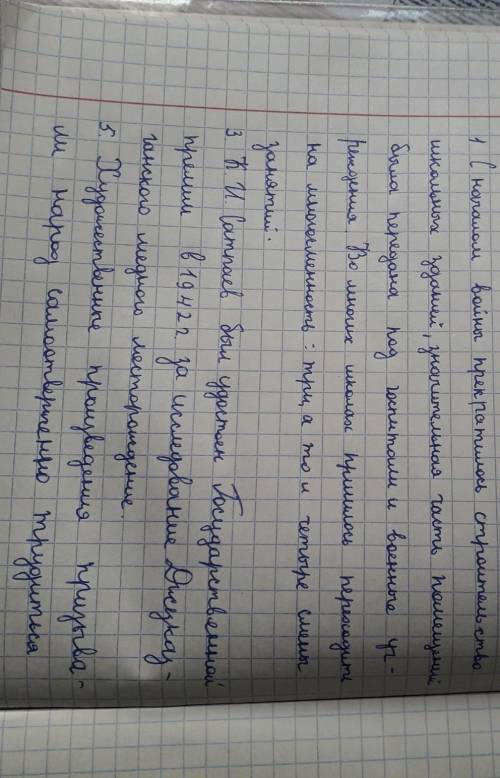 1 С началом войны прекратилось строительство
школьных зданий, значительная часть помещений
была передана под госпитали и военные уч-
реждения. Во многих школах пришлось переходить
на многосменность: три, а то и четыре смены
занятий.
3 К. И. Сатпаев был удостоен Государственной
премии в 1942 г. за исследование Джезказ-
ганского медного месторождение.
5. Художественные произведения призыва-
ли народ самоотверженно трудиться